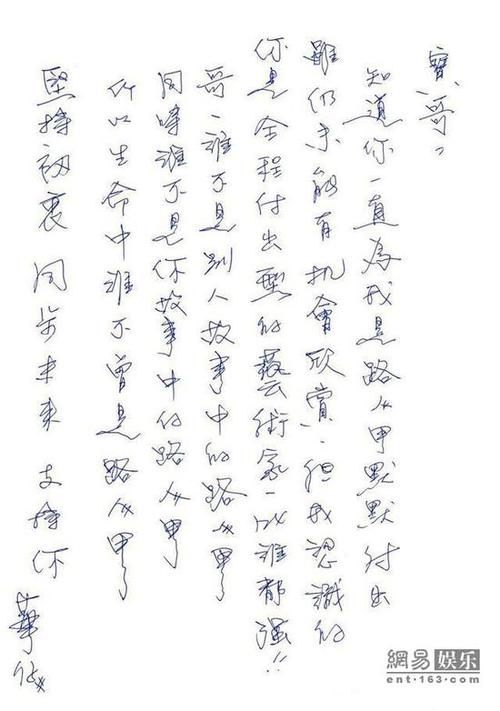 寶哥：
知道你一直為我是路人甲默默付出
雖仍未能有机會欣賞，但我認識的
你是全程付出型的藝術家，比誰都強!!
哥，誰不是別人故事中的路人甲
同時誰不是你故事中的路人甲
所以生命中誰不曾是路人甲
堅持初衷 同步未來 支持你
華仔
網易娱乐
ent·163.com